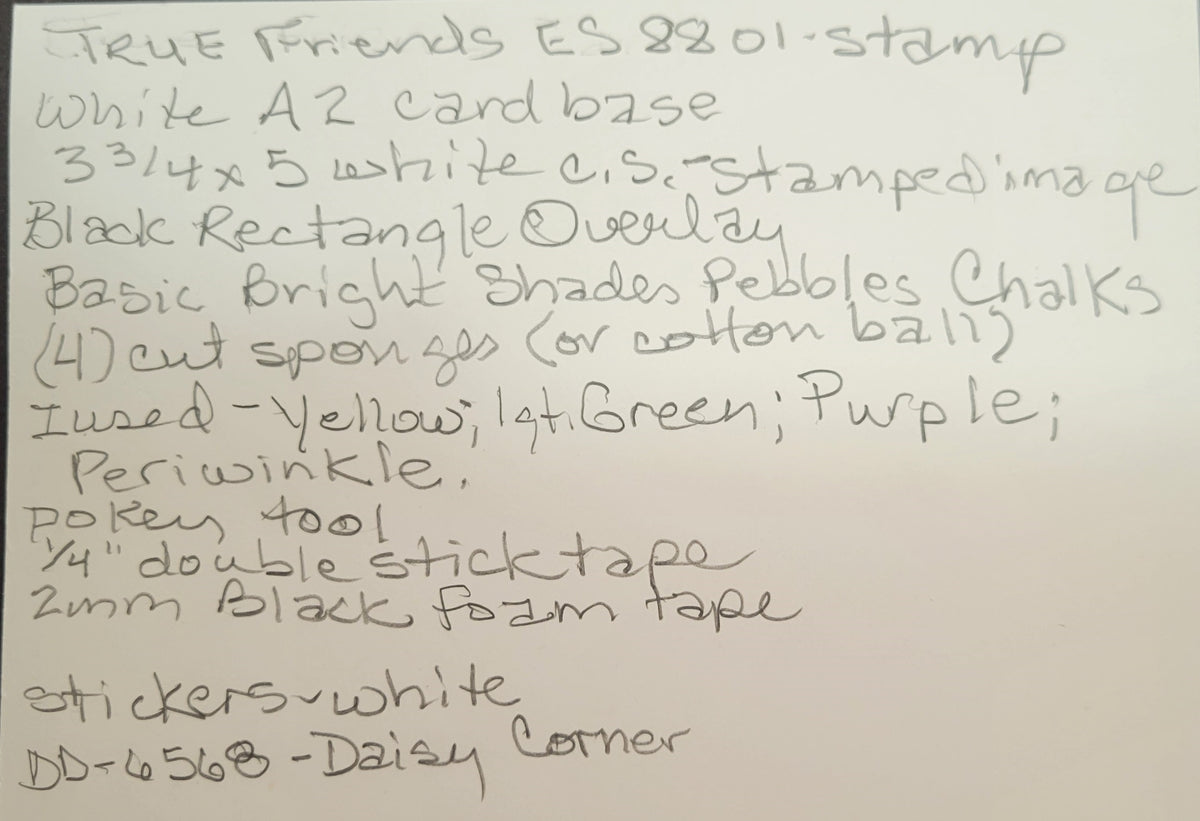 TRUE Friends ES 8801-stamp
White A2 card base
3 3/4 x 5 white c.s.-stamped image
Black Rectangle Overlay
Basic Bright Shades Pebbles Chalks
(4) cut sponges (or cotton ball)
I used - Yellow; lgt. Green; Purple;
Periwinkle.
pokey tool
1/4" double stick tape
2mm Black foam tape
stickers-white
DD-6568-Daisy Corner